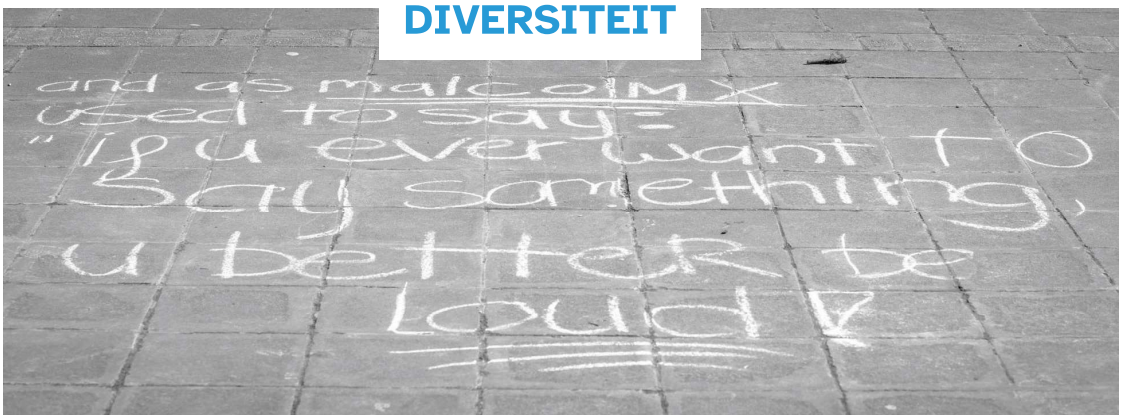 DIVERSITEIT
and as malcolm X
used to say:
"if u ever want to
Say something,
u better be
Loud!